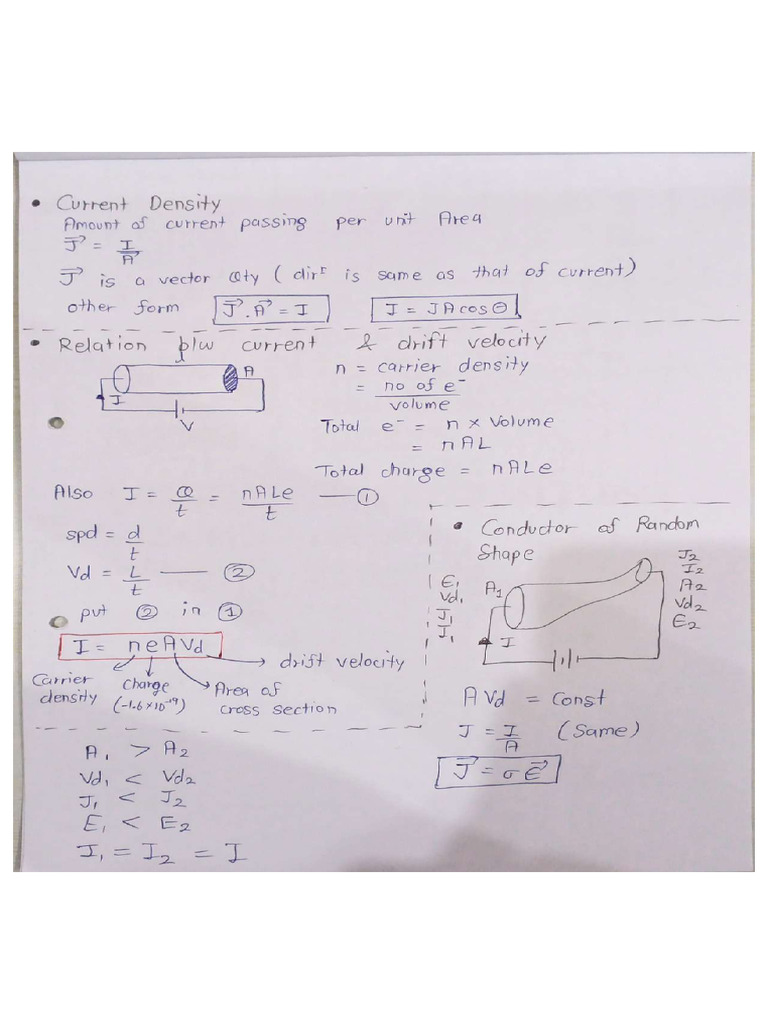 • Current Density
Amount of current passing per unit Area
J⃗ = I / A⃗
J⃗ is a vector Qty ( dirⁿ is same as that of current)
other form J⃗ . A⃗ = I I = JA cos Θ
• Relation b/w current & drift velocity
A
I
V
n = carrier density
= no of e⁻ / volume
Total e⁻ = n × Volume
= nAL
Total charge = nALe
Also I = Q / t = nALe / t — ①
spd = d / t
Vd = L / t — ②
put ② in ①
I = neAVd
drift velocity
Carrier density
Charge (-1.6×10⁻¹⁹)
Area of cross section
• Conductor of Random
Shape
E₁
Vd₁
J₁
I₁
A₁
I
J₂
I₂
A₂
Vd₂
E₂
A Vd = Const
J = I / A (Same)
J⃗ = σ E⃗
A₁ > A₂
Vd₁ < Vd₂
J₁ < J₂
E₁ < E₂
I₁ = I₂ = I